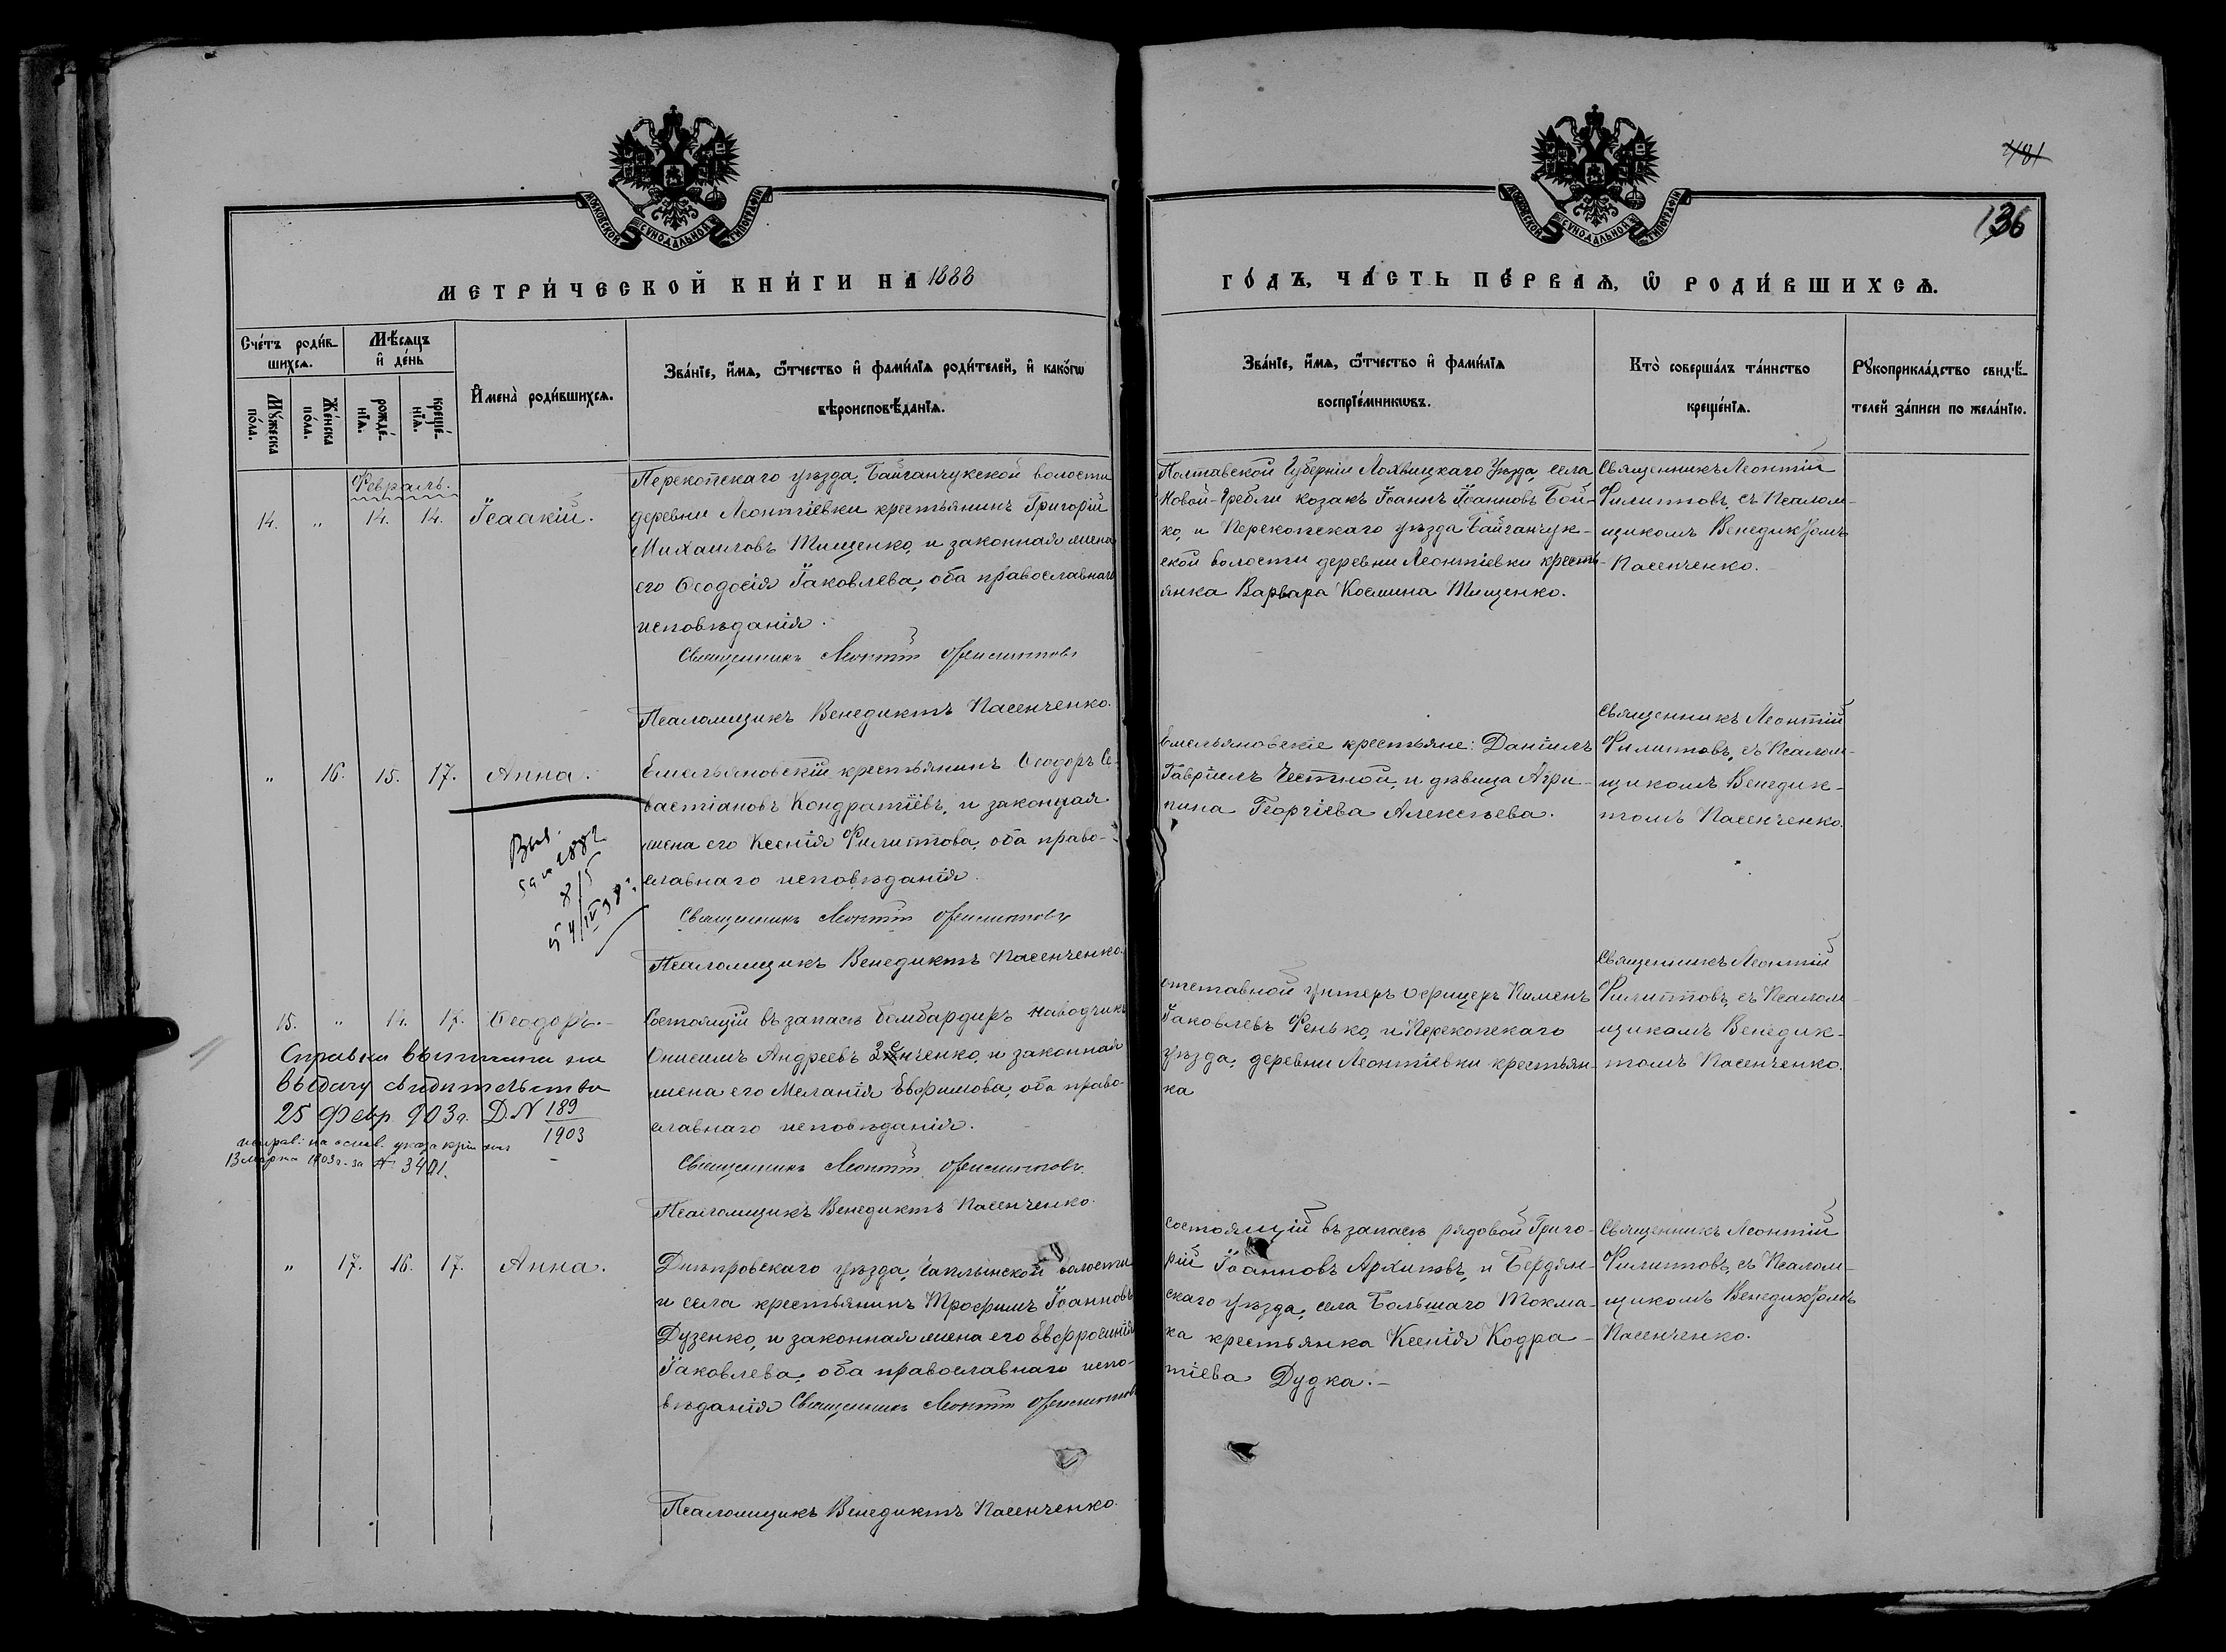 МОСКОВСКОЙ СѴНОДАЛЬНОЙ ТИПОГРАФІИ
МЕТРИ́ЧЕСКОЙ КНИ́ГИ НА 1888
Сче́тъ роди́в-
шихсѧ.
Мѣ́сѧцъ
и҆ де́нь
Мꙋ́жеска
по́ла.
Же́нска
по́ла.
рожде́-
нїѧ.
креще́-
нїѧ.
И҆мена̀ роди́вшихсѧ.
Зва́нїе, и҆́мѧ, ѻ҆́тчество и҆ фами́лїѧ роди́телей, и҆ како́гѡ
вѣроисповѣ́данїѧ.
Февраль.
14. „ 14. 14. Ісаакій.
Перекопскаго уѣзда, Байганчукской волости
деревни Леонтіевки крестьянинъ Григорій
Михаиловъ Тищенко, и законная жена
его Ѳеодосія Іаковлева, оба православнаго
исповѣданія.
Священникъ Леонтій Филипповъ
Псаломщикъ Венедиктъ Пасенченко.
„ 16. 15. 17. Анна.
Емельяновскій крестьянинъ Ѳеодоръ Се-
вастіановъ Кондратіевъ, и законная
жена его Ксенія Филиппова, оба право-
славнаго исповѣданія.
Священникъ Леонтій Филипповъ
Псаломщикъ Венедиктъ Пасенченко.
15. „ 14. 17. Ѳеодоръ.
Состоящій въ запасѣ бомбардиръ наводчикъ
Онисимъ Андреевъ Зенченко, и законная
жена его Меланія Евфимова, оба право-
славнаго исповѣданія.
Священникъ Леонтій Филипповъ.
Псаломщикъ Венедиктъ Пасенченко.
Справка
выдачу свидѣтельства
25 Февр. 903 г. Д. N 189
1903
исправ: на основ. указа
13 марта 1903 г. за № 3401.
„ 17. 16. 17. Анна.
Днѣпровскаго уѣзда, Чаплынской волости
и села крестьянинъ Трофимъ Іоанновъ
Дузенко, и законная жена его Евфросинія
Іаковлева, оба православнаго испо-
вѣданія Священникъ Леонтій Филипповъ
Псаломщикъ Венедиктъ Пасенченко.
МОСКОВСКОЙ СѴНОДАЛЬНОЙ ТИПОГРАФІИ
136
ГО́ДЪ, ЧА́СТЬ ПЕ́РВАѦ, Ѽ РОДИ́ВШИХСѦ.
Зва́нїе, и҆́мѧ, ѻ҆́тчество и҆ фами́лїѧ
воспрїе́мникѡвъ.
Кто̀ соверша́лъ та́инство
креще́нїѧ.
Рꙋкоприкла́дство свидѣ́-
телей за́писи по жела́нїю.
Полтавской Губерніи Лохвицкаго Уѣзда, села
Новой-Гребли козакъ Іоаннъ Іоанновъ Бой-
ко, и Перекопскаго уѣзда Байганчук-
ской волости деревни Леонтіевки кресть-
янка Варвара Космина Тищенко.
Священникъ Леонтій
Филипповъ, съ Псалом-
щикомъ Венедиктомъ
Пасенченко.
Емельяновскіе крестьяне: Даніилъ
Гавріилъ Честной, и дѣвица Агри-
пина Георгіева Алексѣева.
Священникъ Леонтій
Филипповъ, съ Псалом-
щикомъ Венедик-
томъ Пасенченко.
отставной унтеръ офицеръ Пименъ
Іаковлевъ Фенько, и Перекопскаго
уѣзда, деревни Леонтіевки крестьян-
ка
Священникъ Леонтій
Филипповъ, съ Псалом
щикомъ Венедик-
томъ Пасенченко.
Состоящій въ запасѣ рядовой Григо-
рій Іоанновъ Архиповъ, и Бердян-
скаго уѣзда, села Большаго Токма-
ка крестьянка Ксенія Кодра-
тіева Дудка.
Священникъ Леонтій
Филипповъ, съ Псалом-
щикомъ Венедиктомъ
Пасенченко.